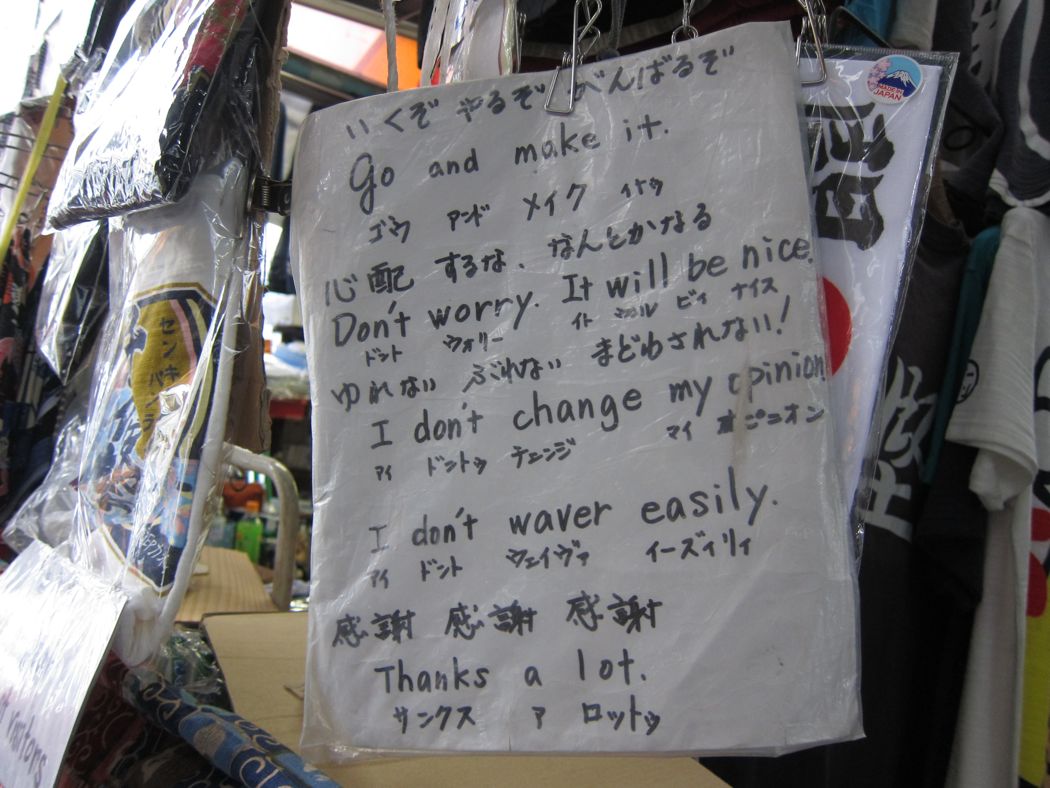 いくぞ やるぞ がんばるぞ
Go and make it.
ゴウ アンド メイク イトゥ
心配するな、なんとかなる
Don't worry. It will be nice.
ドント ウォリー イト ウィル ビィ ナイス
ゆれない ぶれない まどわされない!
I don't change my opinion
アイ ドントゥ チェンジ マイ オピニオン
I don't waver easily.
アイ ドント ウェイヴァ イーズィリィ
感謝 感謝 感謝
Thanks a lot.
サンクス ア ロットゥ
MADE IN JAPAN
センキ
バンラ